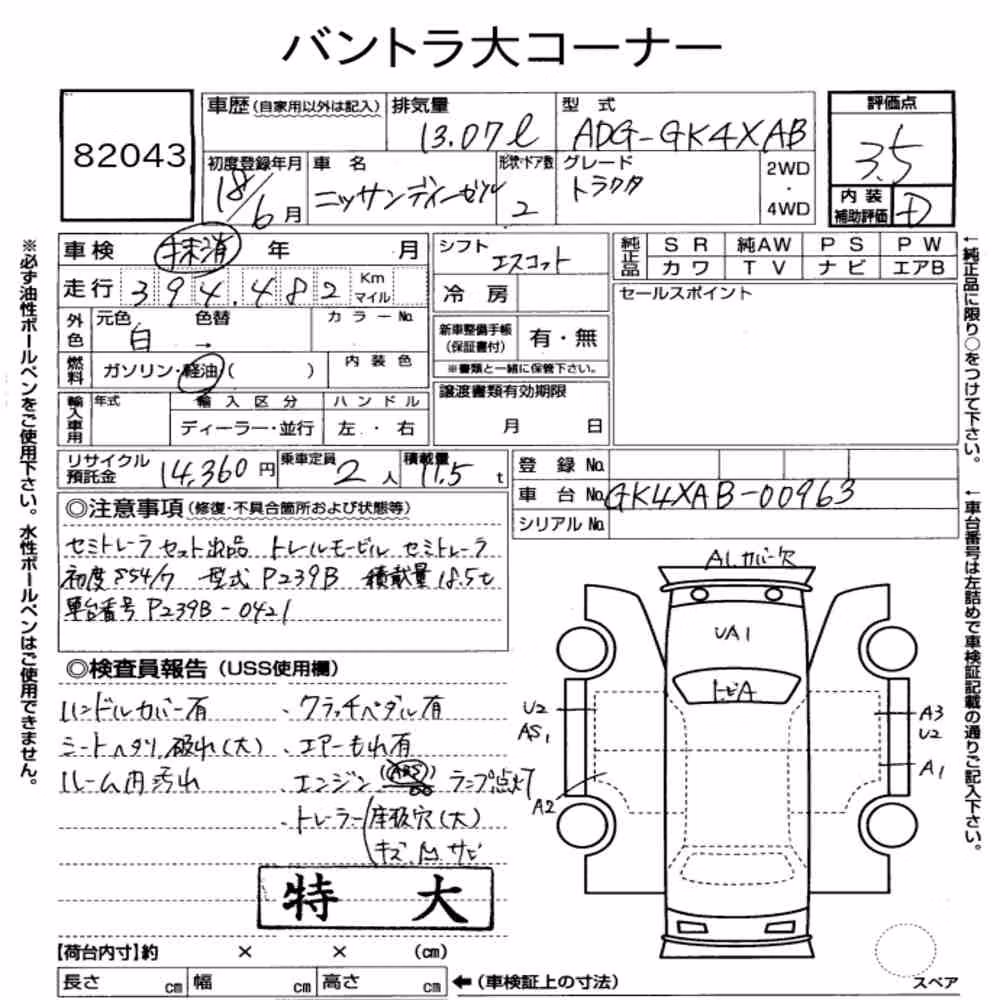 バントラ大コーナー
82043
車歴(自家用以外は記入)
排気量
13.07ℓ
型式
ADG-GK4XAB
評価点
3.5
初度登録年月
18/6月
車名
ニッサンディーゼル
形状・ドア数
2
グレード
トラクタ
2WD
・
4WD
内装
補助評価
D
車検 抹消 年 月
走行 394,482 Km
マイル
外色
元色
白
色替
→
カラーNo.
燃料
ガソリン・軽油( )
内装色
輸入車用
年式
輸入区分
ディーラー・並行
ハンドル
左・右
シフト
エスコット
冷房
新車整備手帳
(保証書付)
有・無
※書類と一緒に保管下さい。
譲渡書類有効期限
月 日
純正品
SR 純AW PS PW
カワ TV ナビ エアB
セールスポイント
リサイクル
預託金
14,360円
乗車定員
2人
積載量
11.5t
登録No.
車台No.
GK4XAB-00963
シリアルNo.
◎注意事項(修復・不具合箇所および状態等)
セミトレーラ セット出品 トレールモービル セミトレーラ
初度S54/7 型式P239B 積載量18.5t
車台番号P239B-0421
◎検査員報告(USS使用欄)
ハンドルカバー有
シートヘタリ、破れ(大)
ルーム内汚れ
、クラッチペダル有
、エアーもれ有
、エンジン(ABS)ランプ点灯
、トレーラー 床板穴(大)
キズ、凹、サビ
特大
【荷台内寸】約 × × (cm)
長さ cm 幅 cm 高さ cm
←(車検証上の寸法)
A1.カバー欠
UA1
トビA
U2
AS1
A2
A3
U2
A1
スペア
※必ず油性ボールペンをご使用下さい。水性ボールペンはご使用できません。
←純正品に限り○をつけて下さい。
←車台番号は左詰めで車検証記載の通りご記入下さい。